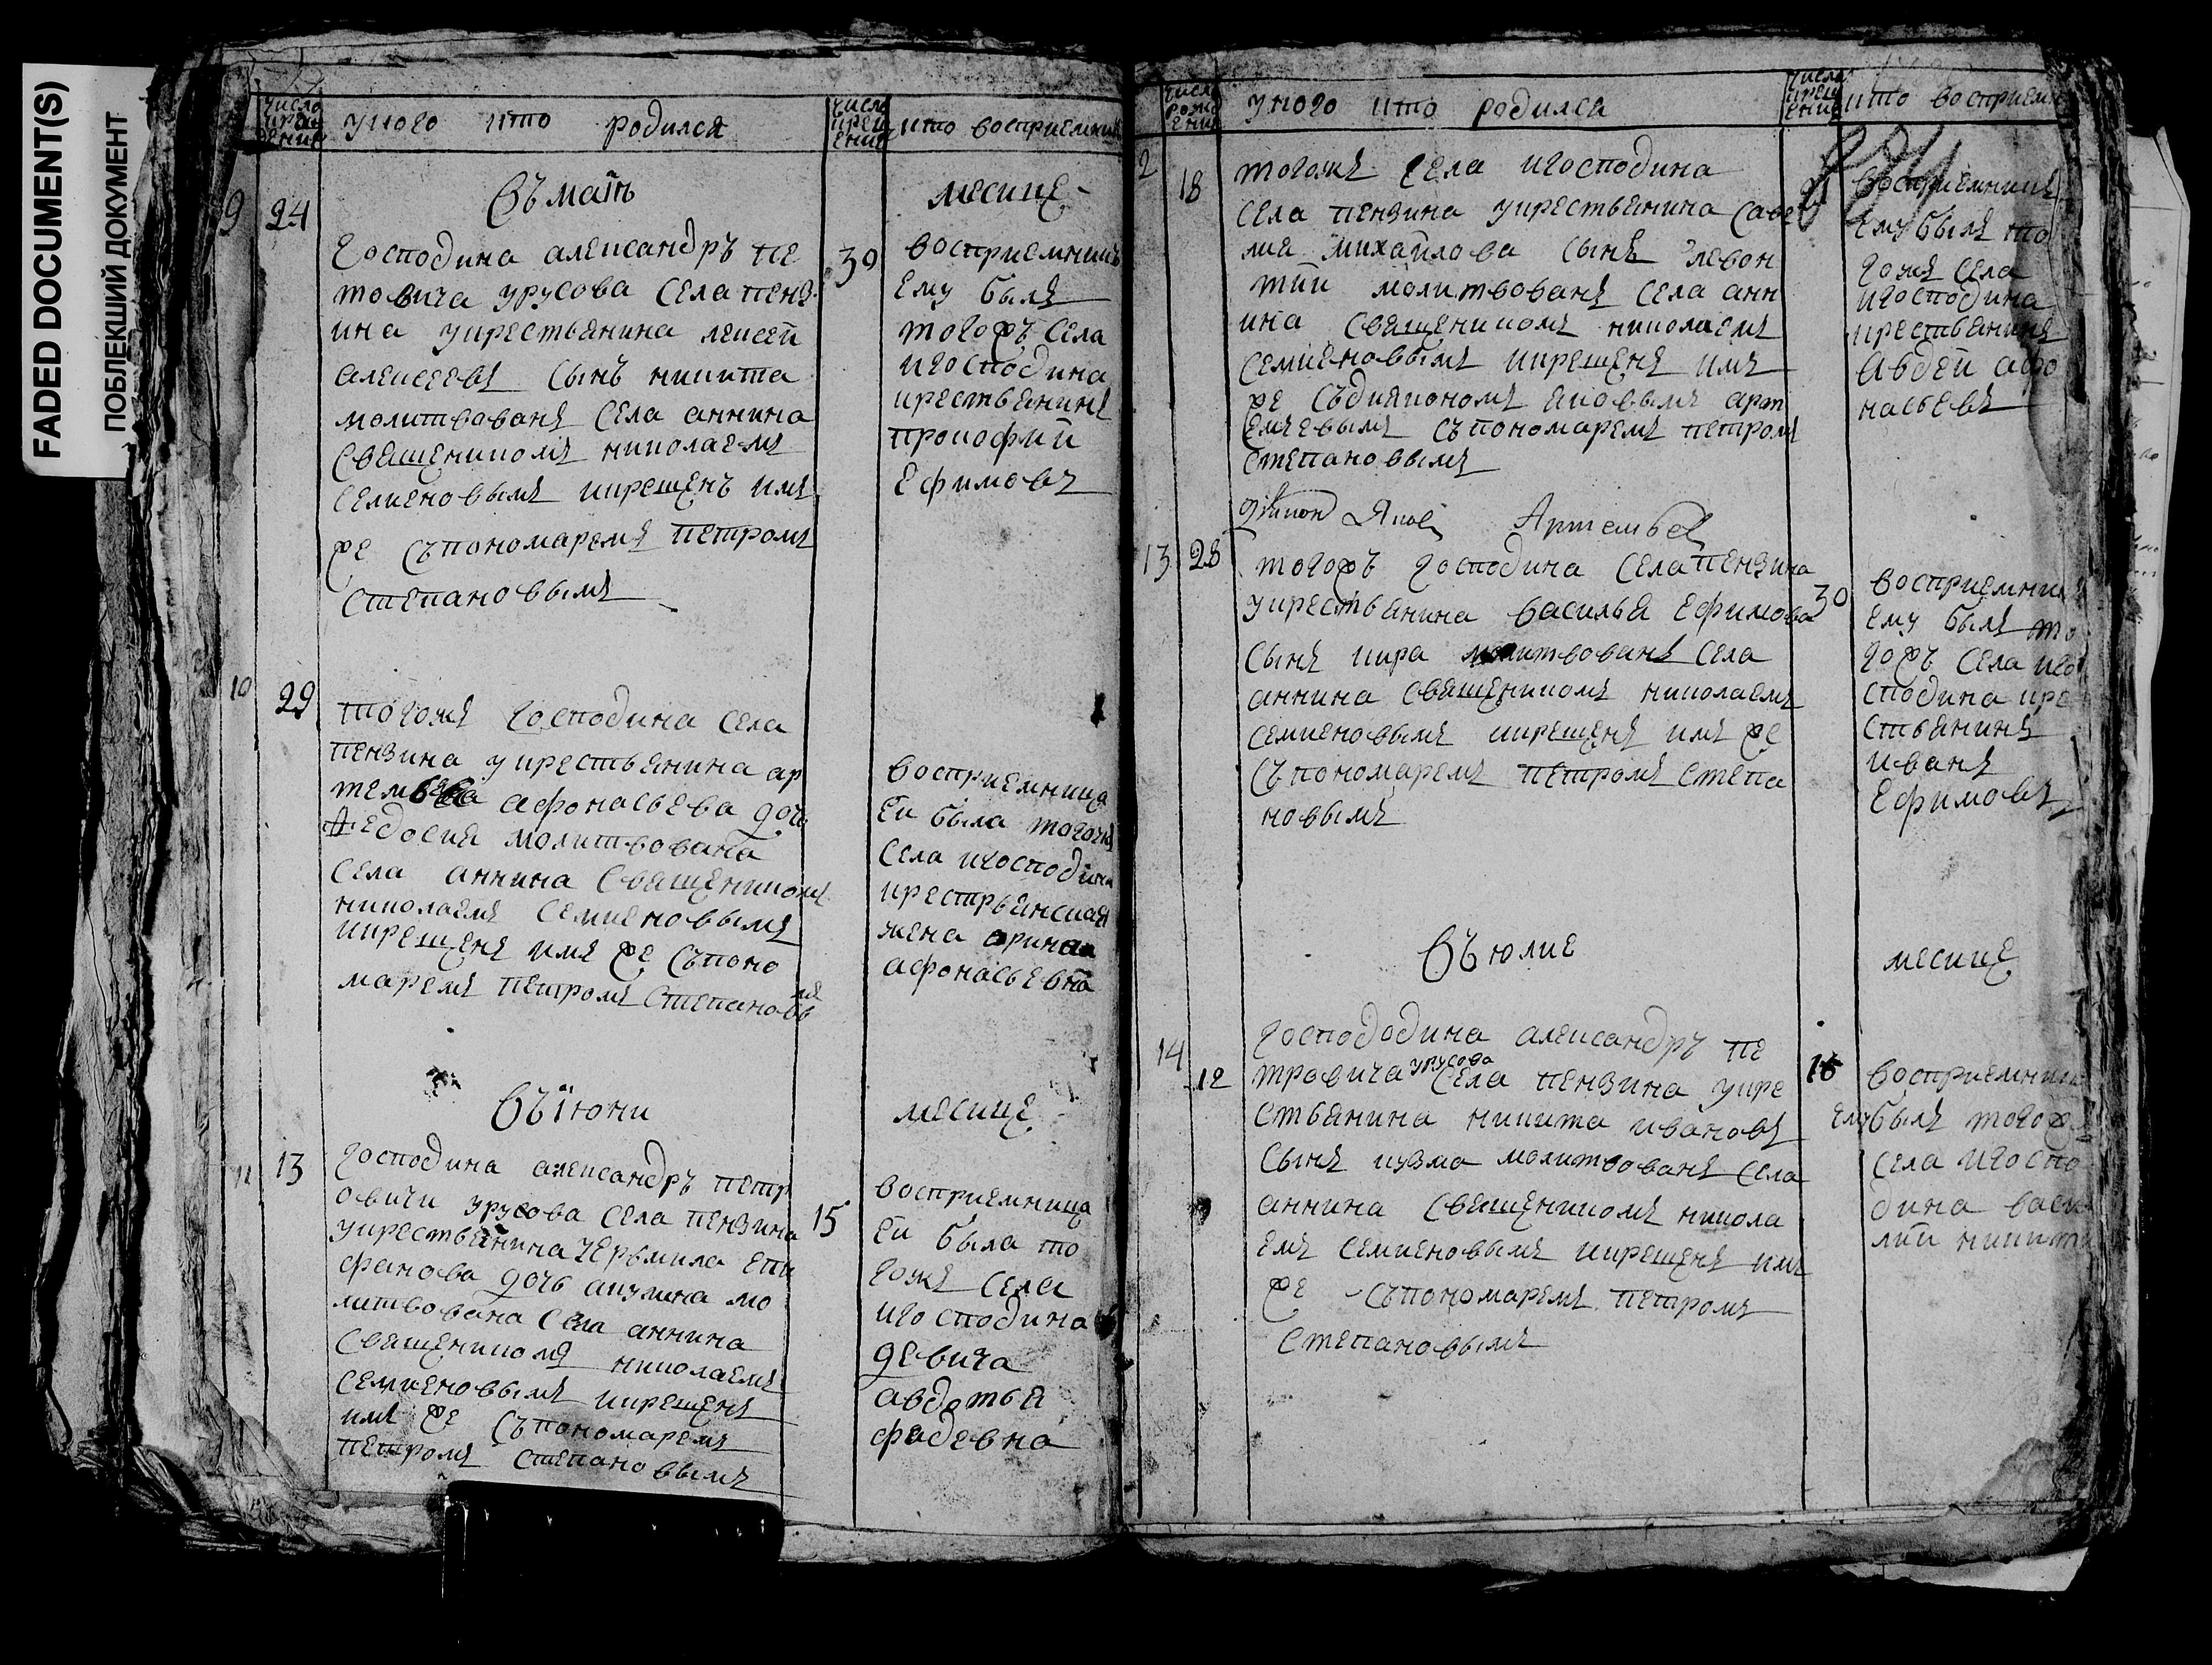 FADED DOCUMENT(S)
ПОБЛЕКШИЙ ДОКУМЕНТ
число
крещ
ение
укого кто родился
число
крещ
ение
кто восприемник
въ маїѣ
месице
9 24
господина александръ пе
товича урусова села пенз
ина укрестьянина
алексеевъ сынъ никита
молитвованъ села аннина
священикомъ николаемъ
семиеновымъ икрещенъ имъ
же съпономаремъ петромъ
степановымъ
30
восприемникъ
ему былъ
тогожъ села
игосподина
крестьянинъ
прокофии
ефимовъ
10 29
тогожъ господина села
пензина укрестьянина ар
темьева афонасьева дочь
федосия молитвована
села аннина священикомъ
николаемъ семиеновымъ
икрещенъ имъ же съпоно
маремъ петромъ степановымъ
восприемница
еи была тогожъ
села игосподина
крестьянская
жена арина
афонасьевна
въ їюни
месице
11 13
господина александръ петр
овичи урусова села пензина
укрестьянина ермила епи
фанова дочь акулина мо
литвована села аннина
священикомъ николаемъ
семиеновымъ икрещенъ
имъ же съпономаремъ
петромъ степановымъ
15
восприемница
еи была то
гожъ села
игосподина
девица
авдотья
фадевна
число
рожд
ение
укого кто родился
число
крещ
ение
кто восприем
2 18
тогожъ села игосподина
села пензина укрестьянина саве
лия михайлова сынъ левон
тии молитвованъ села анн
ина священикомъ николаемъ
семиеновымъ икрещенъ имъ
же съдиякономъ яковымъ арт
емьевымъ съпономаремъ петромъ
степановымъ
дьякон Яков Артемьев
21
восприемникъ
ему былъ то
гожъ села
игосподина
крестьянинъ
авдеи афо
насьевъ
13 28
тогожъ господина села пензина
укрестьянина василья ефимова
сынъ кира молитвованъ села
аннина священикомъ николаемъ
семиеновымъ икрещенъ имъ же
съпономаремъ петромъ степа
новымъ
30
восприемникъ
ему былъ то
гожъ села иго
сподина кре
стьянинъ
иванъ
ефимовъ
въ юлие
месице
14
12
господодина александръ пе
тровича урусова села пензина укре
стьянина никита ивановъ
сынъ кузма молитвованъ села
аннина священикомъ никола
емъ семиеновымъ икрещенъ имъ
же съпономаремъ петромъ
степановымъ
восприемникъ
ему былъ тогожъ
села игоспо
дина васи
лии никит